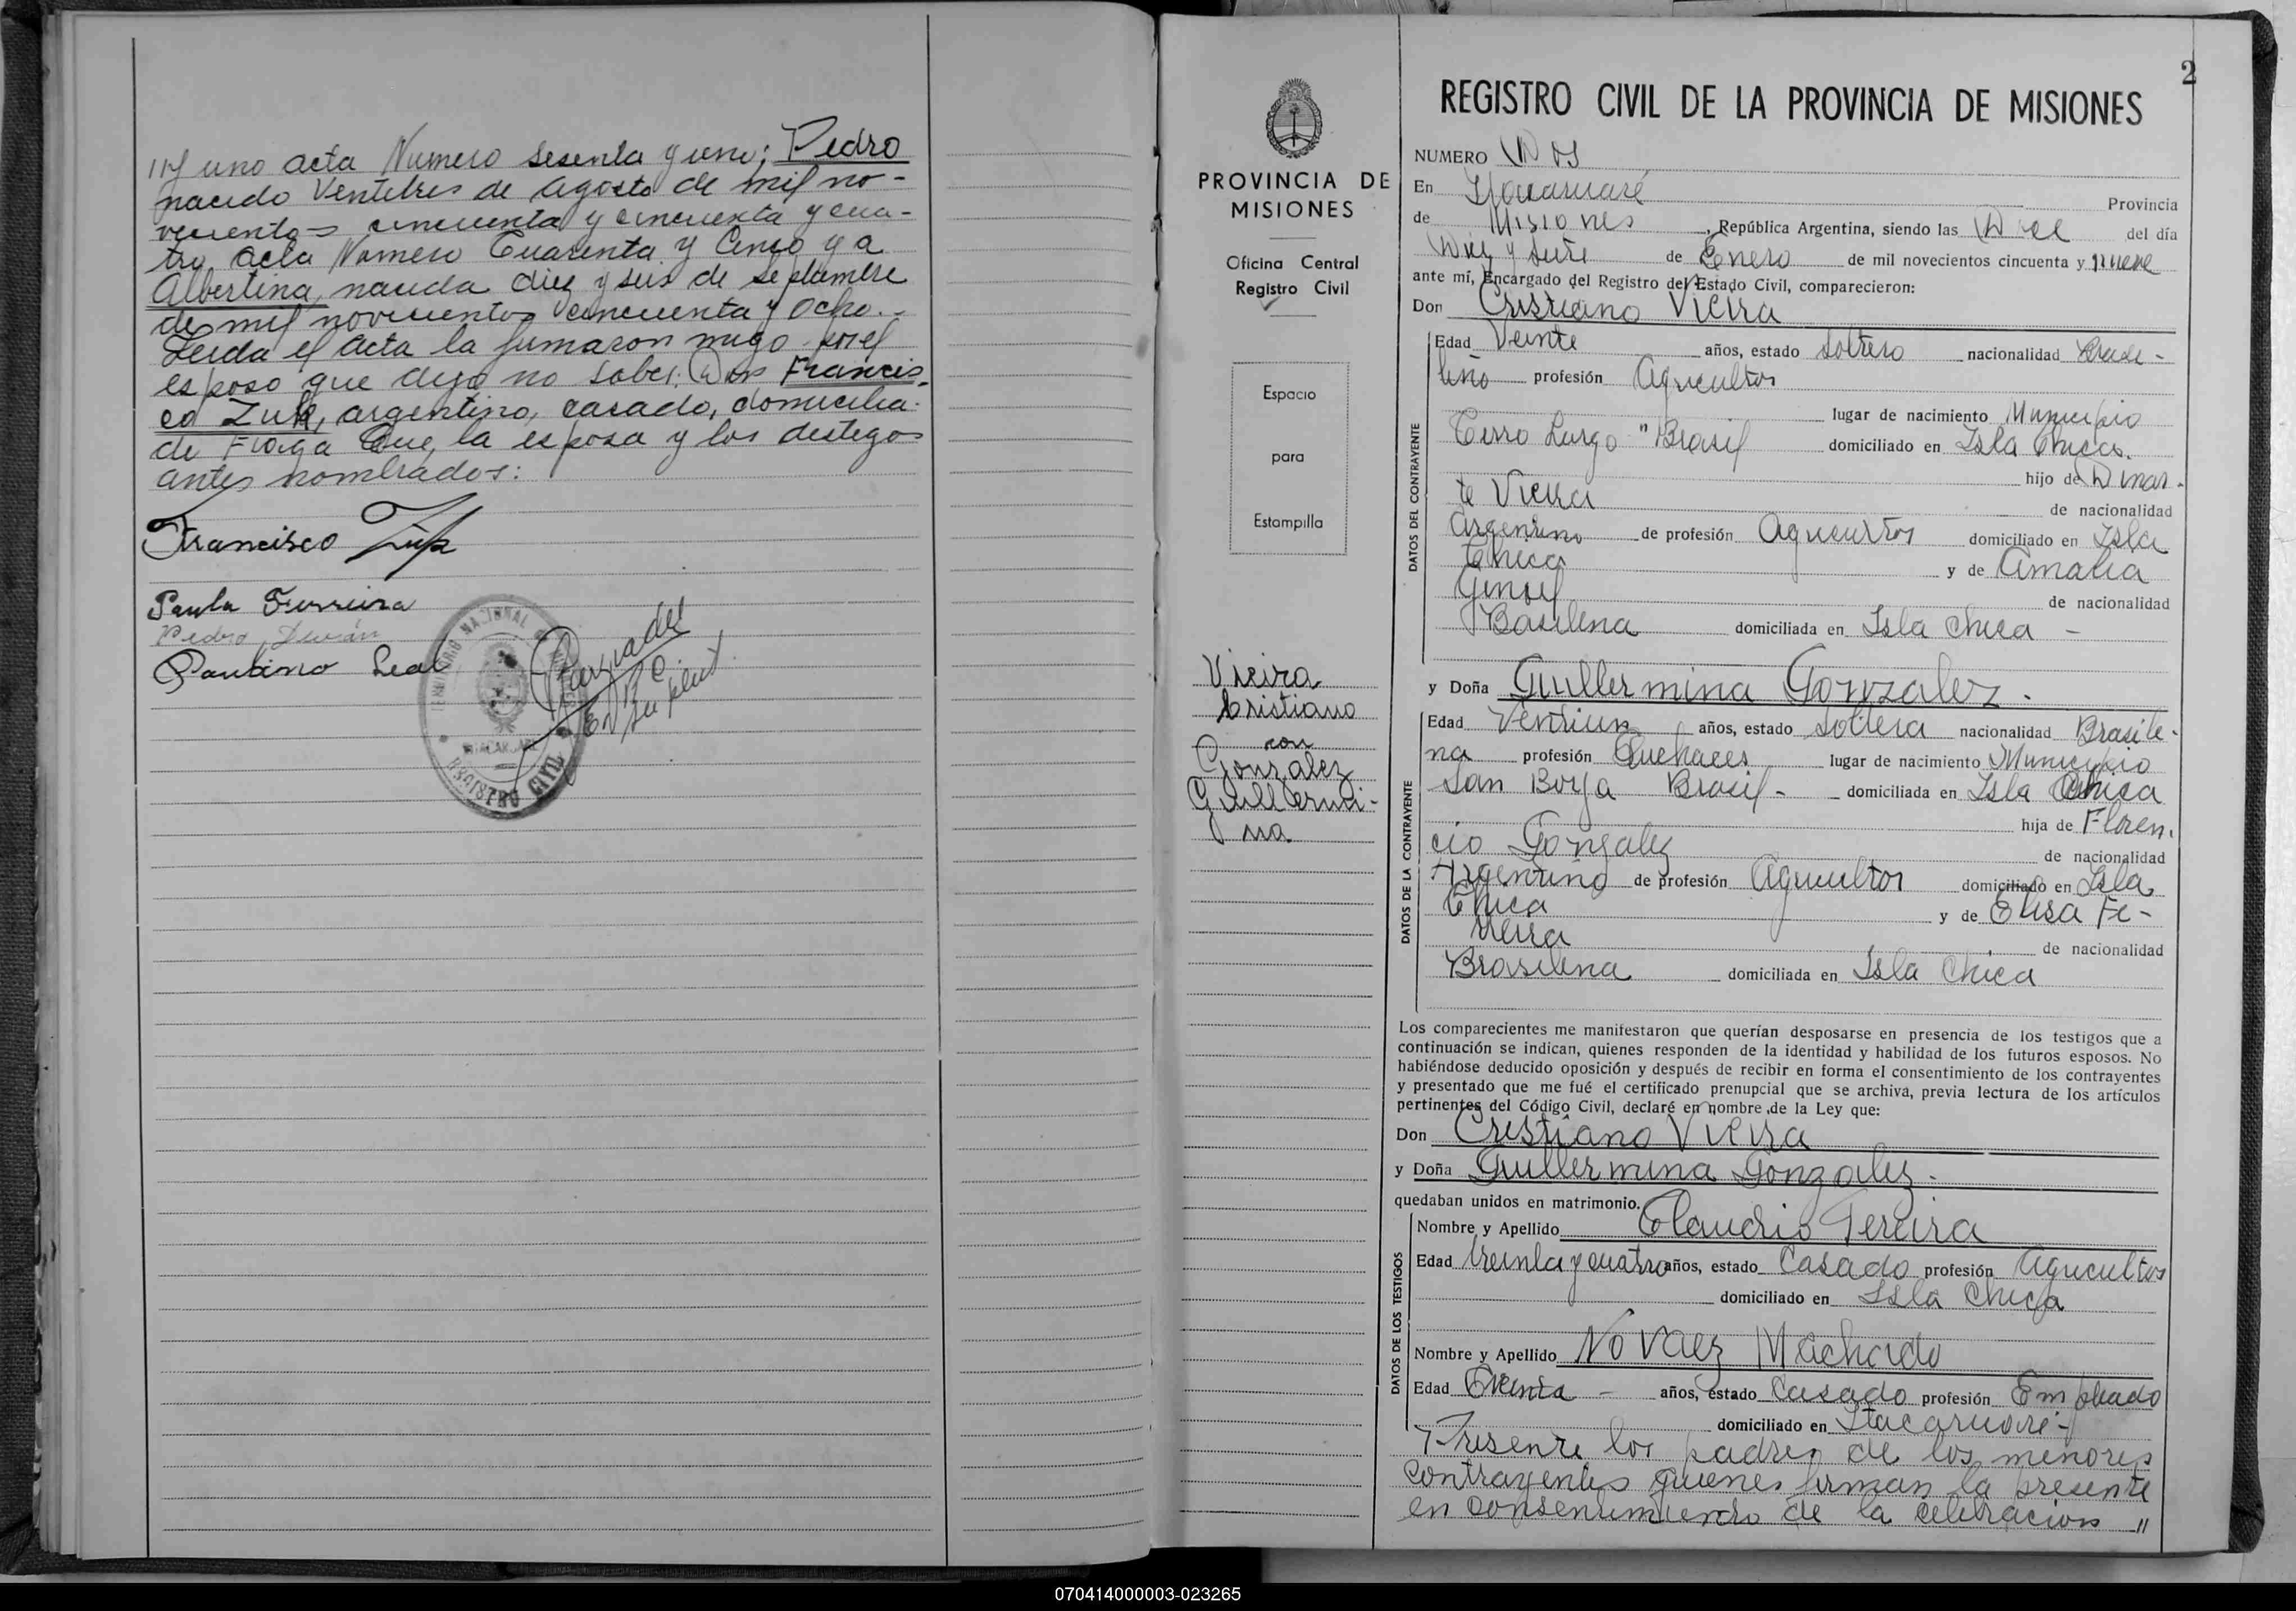 uno acta Numero sesenta y uno; Pedro
nacido Ventitres de Agosto de mil no-
vecientos cincuenta y cincuenta y cua-
tro acta Numero Cuarenta y Cinco y a
Albertina, nacida diez y seis de septiembre
de mil novecientos cincuenta y ocho.-
Leida el acta la firmaron migo por el
esposo que dijo no saber. Don Francis-
co Zuk, argentino, casado, domicilia-
do que, la esposa y los destigos
antes nombrados:
Francisco
Paula Ferreira
Pedro
Paulino Leal
TERRITORIO NACIONAL
REGISTRO CIVIL
2
PROVINCIA DE
MISIONES
Oficina Central
Registro Civil
Espacio
para
Estampilla
Vieira
Cristiano
con
Gonzalez
Guillermi-
na
REGISTRO CIVIL DE LA PROVINCIA DE MISIONES
NUMERO Dos
En Itacaruaré Provincia
de Misiones, República Argentina, siendo las Doce del día
Diez y siete de Enero de mil novecientos cincuenta y nueve
ante mí, Encargado del Registro del Estado Civil, comparecieron:
Don Cristiano Vieira
DATOS DEL CONTRAYENTE
Edad Veinte años, estado soltero nacionalidad Brasi-
leño profesión Agricultor
lugar de nacimiento Municipio
Cerro Largo "Brasil domiciliado en Isla Chica.
hijo de Dinar-
te Vieira de nacionalidad
Argentino de profesión Agricultor domiciliado en Isla
Chica y de Amalia
de nacionalidad
Brasilena domiciliada en Isla Chica -
y Doña Guillermina Gonzalez.
DATOS DE LA CONTRAYENTE
Edad Ventiun años, estado soltera nacionalidad Brasile-
na profesión Quehaceres lugar de nacimiento Municipio
San Borja Brasil - domiciliada en Isla Chica
hija de Floren-
cio Gonzalez de nacionalidad
Argentino de profesión Agricultor domiciliado en Isla
Chica y de Elisa Fe-
rreira de nacionalidad
Brasilena domiciliada en Isla Chica
Los comparecientes me manifestaron que querían desposarse en presencia de los testigos que a
continuación se indican, quienes responden de la identidad y habilidad de los futuros esposos. No
habiéndose deducido oposición y después de recibir en forma el consentimiento de los contrayentes
y presentado que me fué el certificado prenupcial que se archiva, previa lectura de los artículos
pertinentes del Código Civil, declaré en nombre de la Ley que:
Don Cristiano Vieira
y Doña Guillermina Gonzalez.
quedaban unidos en matrimonio.
DATOS DE LOS TESTIGOS
Nombre y Apellido Claudio Pereira
Edad treinta y cuatro años, estado Casado profesión Agricultor
domiciliado en Isla Chica
Nombre y Apellido Novaez Machado
Edad Treinta - años, estado Casado profesión Empleado
domiciliado en Itacaruaré-
Presente los padres de los menores
contrayentes quienes firman la presente
en consentimiento de la celebracion "
070414000003-023265